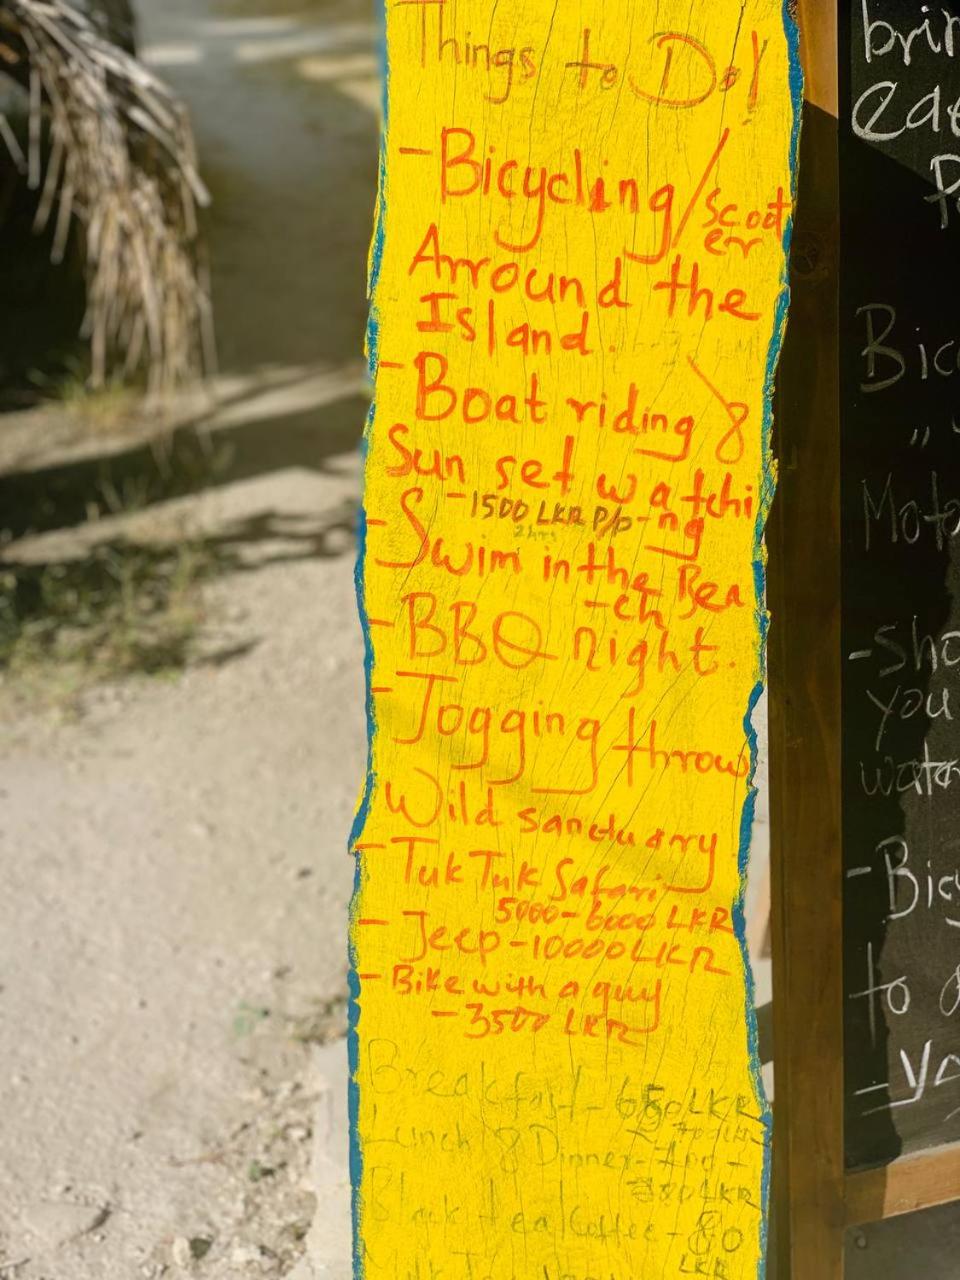 Things to Do!
-Bicycling/scoot
er
Arround the
Island.
-Boat riding &
Sun set watchi
-1500 LKR P/p -ng
2hrs
-Swim in the Bea
-ch
-BBQ night.
-Jogging throw
Wild sanctuary
-Tuk Tuk Safari
5000-6000 LKR
-Jeep-10000LKR
-Bike with a guy
-3500 LKR
Breakfast-650LKR
Lunch & Dinner-
LKR
Black tea/Coffee-80
LKR
Milk Tea
brin
Eat
Bic
"
Moto
-sho
you
water
-Bicy
to